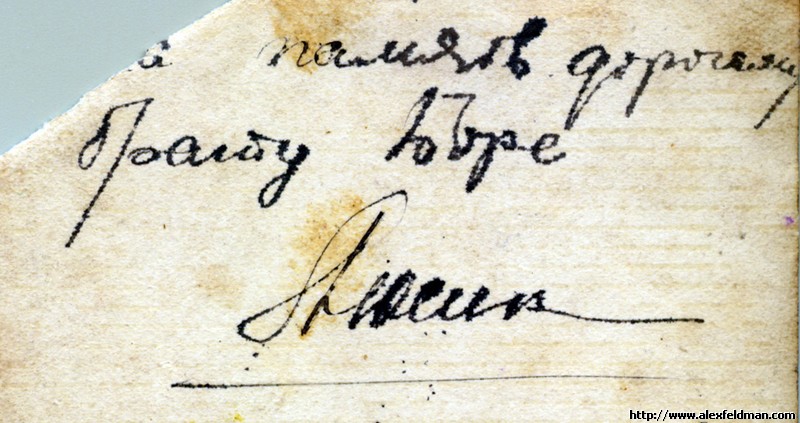 а память дорогому
брату
Люсик
http://www.alexfeldman.com